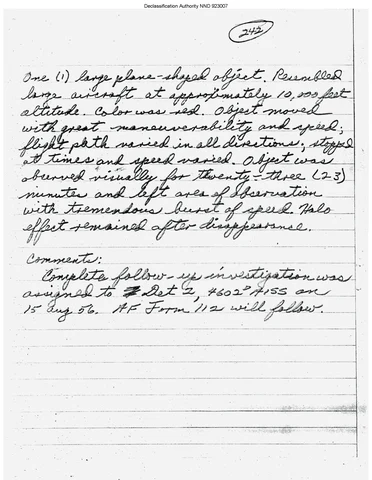 Declassification Authority NND 923007
242
One (1) large plane-shaped object. Resembled
large aircraft at approximately 10,000 feet
altitude. Color was red. Object moved
with great maneuverability and speed;
flight path varied in all directions; stopped
at times and speed varied. Object was
observed visually for twenty-three (23)
minutes and left area of observation
with tremendous burst of speed. Halo
effect remained after disappearance.
Comments:
Complete follow-up investigation was
assigned to Det 2, 4602d AISS on
15 Aug 56. AF Form 112 will follow.